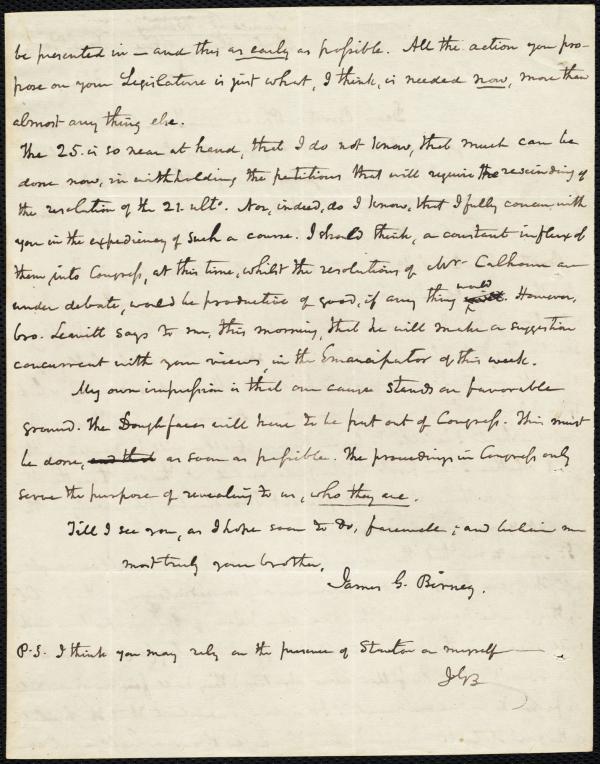 be presented in — and this as early as possible. All the action you pro-
pose on your Legislature is just what, I think, is needed now, more than
almost any thing else.
The 25. is so near at hand, that I do not know, that much can be
done now, in withholding the petitions that will require the rescinding of
the resolution of the 21. ulto. Nor, indeed, do I know, that I fully concur with
you in the expediency of such a course. I should think, a constant influx of
them, into Congress, at this time, whilst the resolutions of Mr. Calhoun are
under debate, would be productive of good, if any thing would. However,
bro. Leavitt says to me, this morning, that he will make a suggestion
concurrent with your views, in the Emancipator of this week.
My own impression is that our cause stands on favorable
ground. The Doughfaces will have to be put out of Congress. This must
be done, and that as soon as possible. The proceedings in Congress only
serve the purpose of revealing to us, who they are.
Till I see you, as I hope soon to do, farewell; and believe me
most truly your brother,
James G. Birney.
P.S. I think you may rely on the presence of Stanton or myself
JGB